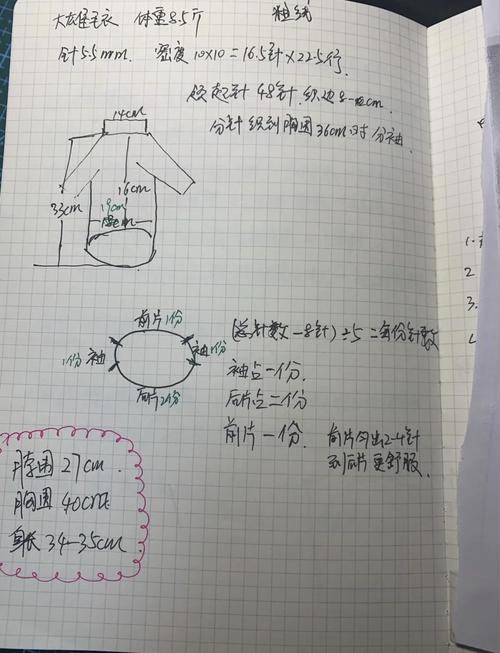 大灰堡毛衣 体重8.5斤 粗线
针5.5mm. 密度10×10=16.5针×22.5行.
领起针48针.织边8-
分针织到胸围36cm时分袖.
14cm
16cm
19cm
33cm
前片1份
1份袖
袖1份
后片2份
(总针数-8针)÷5=每份针数
袖占一份.
后片占二份
前片一份.
前片匀出2-4针
到后片更舒服.
脖围27cm.
胸围40cm
身长34-35cm
1.
2
3.